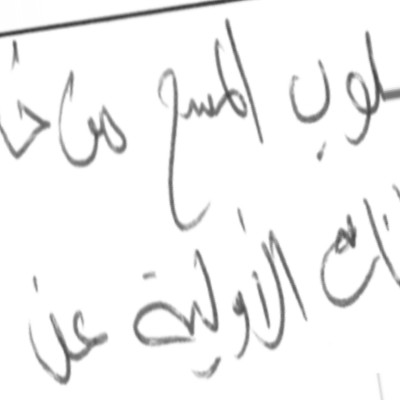 سلوب المسح من خ
نات الأولية عن